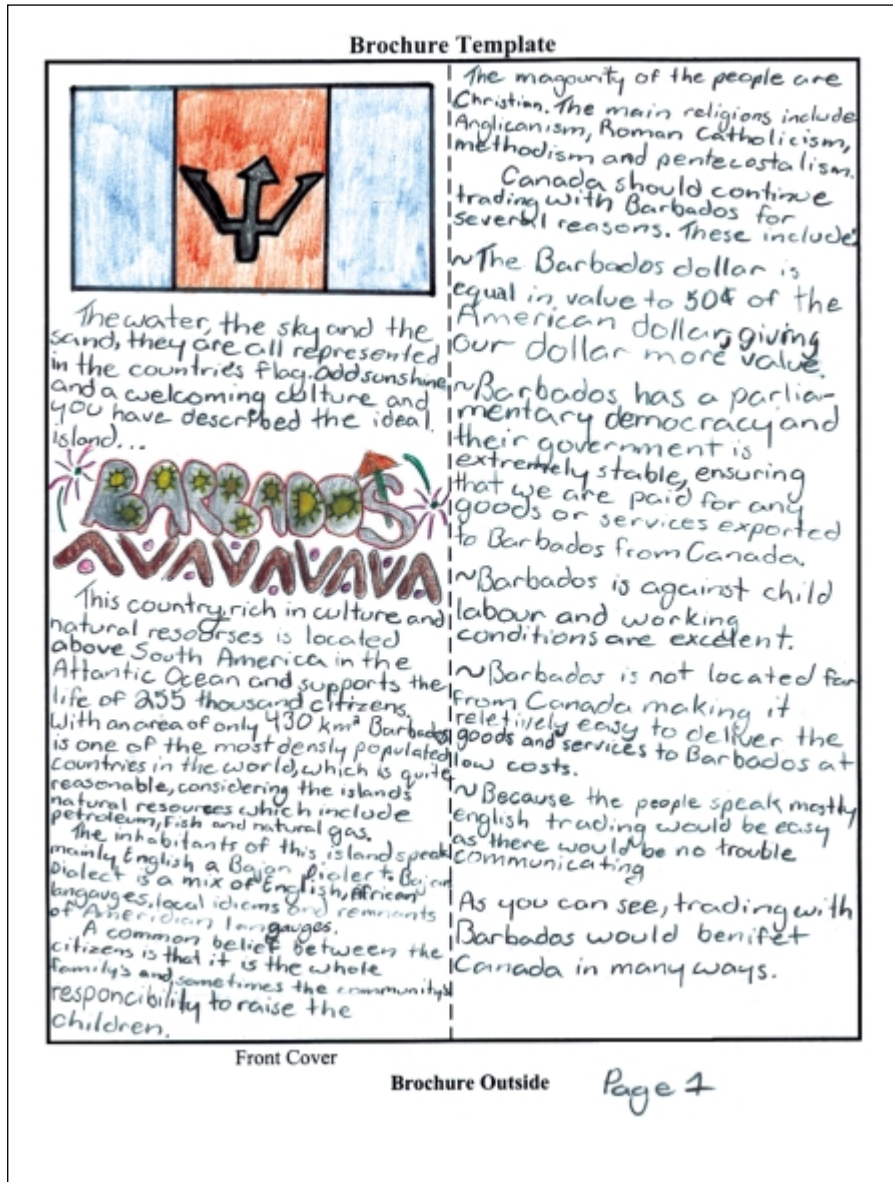 Brochure Template
The water, the sky and the
sand, they are all represented
in the countries flag. Add sunshine
and a welcoming culture and
you have described the ideal
island...
BARBADOS
This country, rich in culture and
natural resourses is located
above South America in the
Atlantic Ocean and supports the
life of 255 thousand citizens.
With an area of only 430 km² Barbados
is one of the most densly populated
countries in the world, which is quite
reasonable, considering the islands
natural resources which include
petroleum, fish and natural gas.
The inhabitants of this island speak
mainly English a Bajan Dialect. Bajan
Dialect is a mix of English, African
langauges, local idioms and remnants
of Ameridian langauges.
A common belief between the
citizens is that it is the whole
family's and, sometimes the community's
responcibility to raise the
children.
Front Cover
The magourity of the people are
Christian. The main religions include
Anglicanism, Roman Catholicism,
methodism and pentecostalism.
Canada should continue
trading with Barbados for
several reasons. These include:
~The Barbados dollar is
equal in value to 50¢ of the
American dollar, giving
our dollar more value.
~Barbados has a parlia-
mentary democracy and
their government is
extremely stable, ensuring
that we are paid for any
goods or services exported
to Barbados from Canada.
~Barbados is against child
labour and working
conditions are excelent.
~Barbados is not located far
from Canada making it
reletively easy to deliver the
goods and services to Barbados at
low costs.
~Because the people speak mostly
english trading would be easy
as there would be no trouble
communicating
As you can see, trading with
Barbados would benifet
Canada in many ways.
Brochure Outside
Page 1